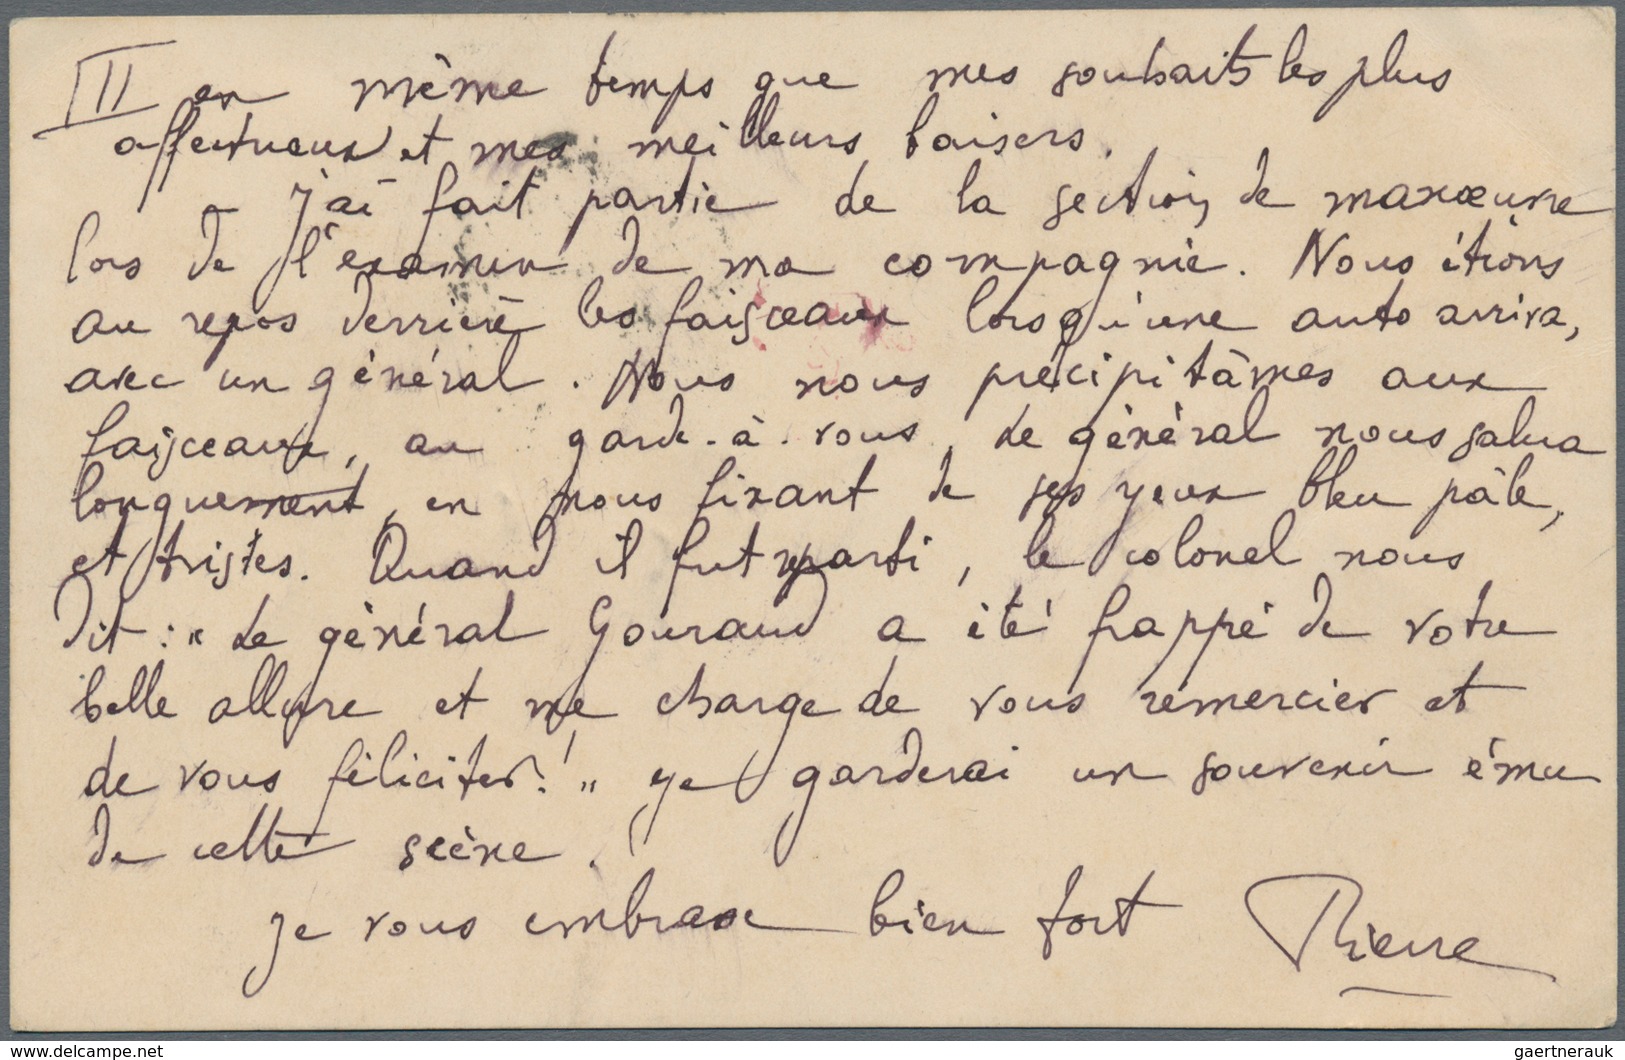 II en même temps que mes souhaits les plus
affectueux et mes meilleurs baisers.
J'ai fait partie de la section de manœuvre
lors de l'examen de ma compagnie. Nous étions
au repos derrière les faisceaux lorsqu'une auto arriva,
avec un général. Nous nous précipitâmes aux
faisceaux, au garde-à-vous, Le général nous salua
longuement, en nous fixant de ses yeux bleu pâle,
et tristes. Quand il fut reparti, le colonel nous
dit : " Le général Gouraud a été frappé de votre
belle allure et me charge de vous remercier et
de vous féliciter! " Je garderai un souvenir ému
de cette scène.
Je vous embrasse bien fort Pierre
www.delcampe.net
gaertnerauk